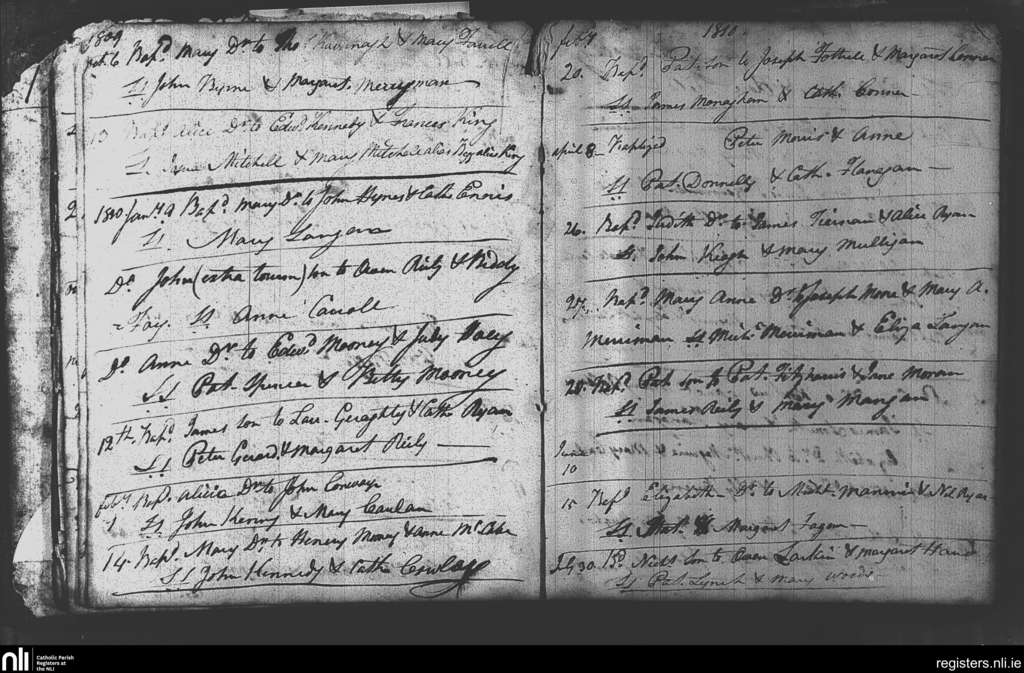 1809
Oct 10 Bapd. Mary Dr to Thos Kavanagh & Mary Farrell
Ss John Byrne & Margaret Merryman
13 Bapd Alice Dr to Edwd Kennedy & Frances King
Ss Mitchell & Mary Mitchell alias King
1810 Jany 9 Bapd Mary Dr to John Hynes & Cath Ennis
Ss. Mary Langan
Do John (extra tourum) son to Owen Reily & Biddy
Fay. Ss Anne Carroll
Do Anne Dr to Edwd Mooney & Judy
Ss Pat. Spencer & Betty Mooney
12th Bapd James son to Lau. Geraghty & Cath Ryan
Ss Peter Gerard & Margaret Reily
Feby Bapd. Alicia Dr to John Conway
1 Ss John Kenny & Mary Canlan
14 Bapd. Mary Dr to Henery & Anne McCabe
Ss John Kennedy & Cath
Feby 1810
20. Bapd. Pat. son to Joseph & Margaret Connor
Ss James Monaghan & Cath. Connor
April 8 Baptized Peter Morris & Anne
Ss Pat. Donnelly & Cath. Flanagan
26. Bapd. Judith Dr to James Tiernan & Alice Ryan
Ss. John Keogh & Mary Mulligan
27. Bapd. Mary Anne Dr to Joseph Moore & Mary A.
Merriman Ss Michl Merriman & Eliza Langan
28. Bapd. Pat son to Pat. Fitzharris & Jane Moran
Ss James Reily & Mary Mangan
June
10
15 Bapd Elizabeth Dr to Michl. & Ryan
Ss Margaret Fagan
July 30. Bd. Nichs son to Owen Larkin & Margaret
Ss Pat Lynch & Mary Woods
nli
Catholic Parish
Registers at
the NLI
registers.nli.ie